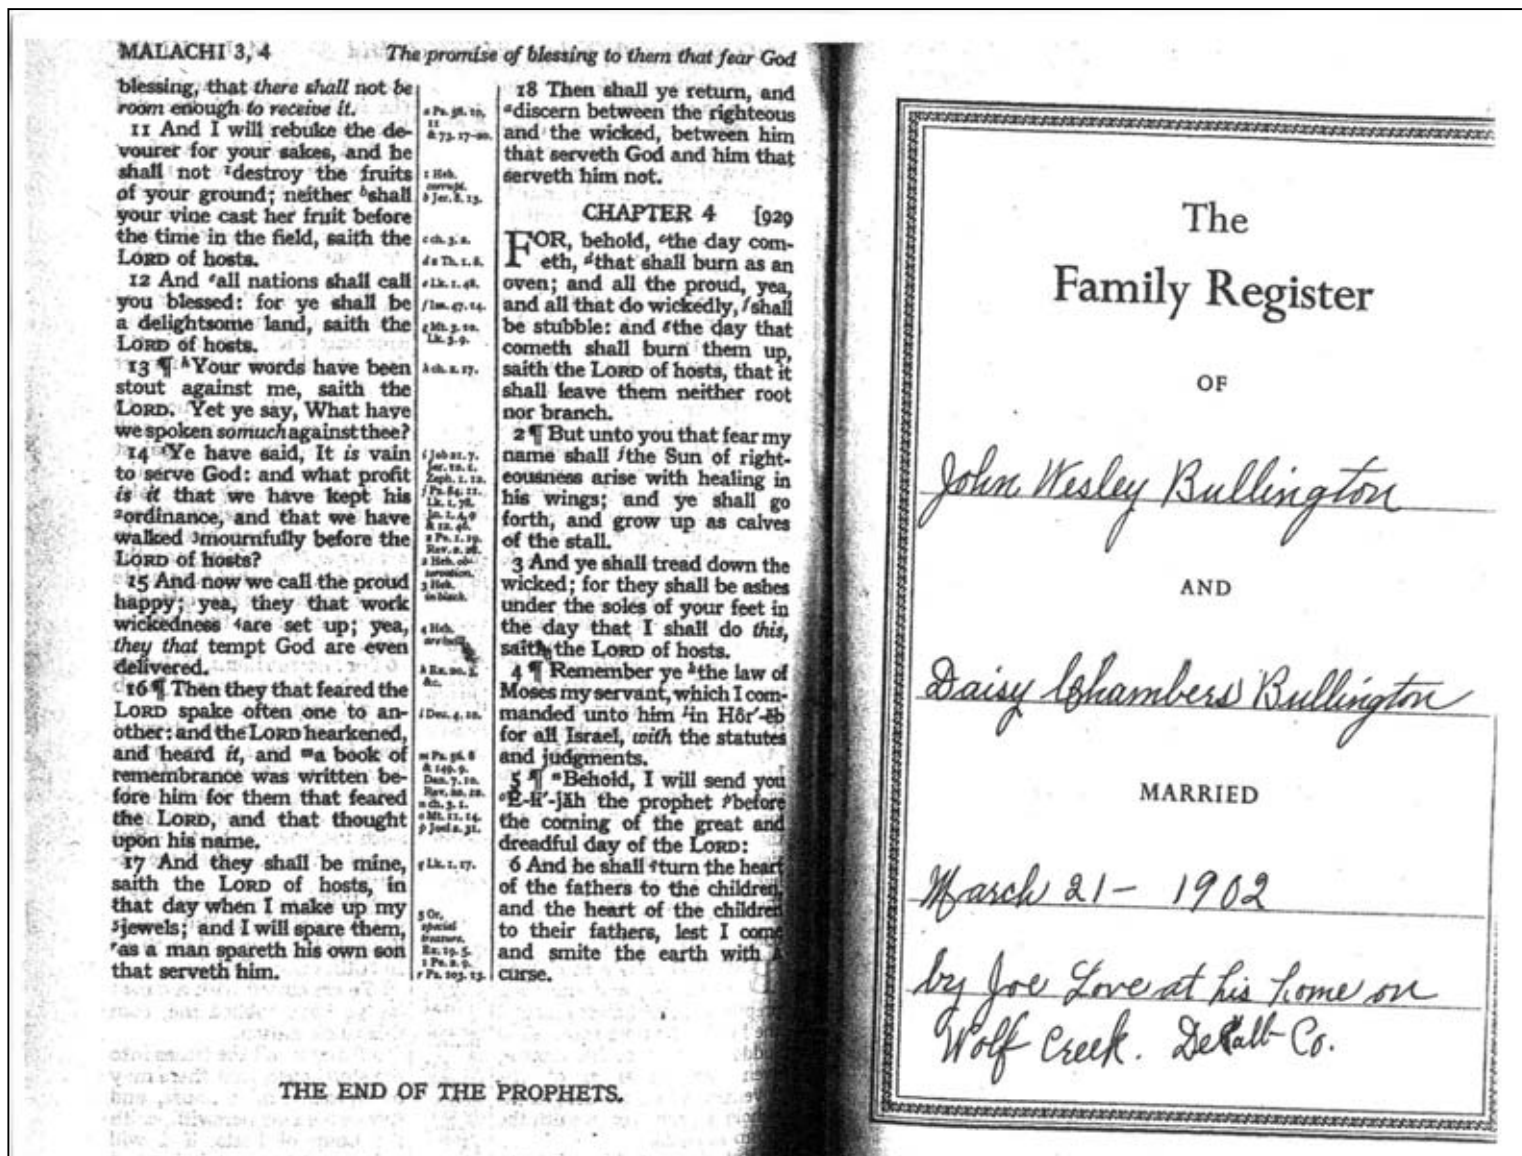 MALACHI 3, 4
The promise of blessing to them that fear God
blessing, that there shall not be
room enough to receive it.
11 And I will rebuke the de-
vourer for your sakes, and he
shall not ¹destroy the fruits
of your ground; neither ᵇshall
your vine cast her fruit before
the time in the field, saith the
LORD of hosts.
12 And ᵉall nations shall call
you blessed: for ye shall be
a delightsome land, saith the
LORD of hosts.
13 ¶ ʰYour words have been
stout against me, saith the
LORD. Yet ye say, What have
we spoken so much against thee?
14 Ye have said, It is vain
to serve God: and what profit
is it that we have kept his
²ordinance, and that we have
walked ³mournfully before the
LORD of hosts?
15 And now we call the proud
happy; yea, they that work
wickedness ⁴are set up; yea,
they that tempt God are even
delivered.
16 ¶ Then they that feared the
LORD spake often one to an-
other: and the LORD hearkened,
and heard it, and ᵐa book of
remembrance was written be-
fore him for them that feared
the LORD, and that thought
upon his name.
17 And they shall be mine,
saith the LORD of hosts, in
that day when I make up my
⁵jewels; and I will spare them,
ʳas a man spareth his own son
that serveth him.
a Ps. 58. 10,
11
& 73. 17-20.
1 Heb.
corrupt.
b Jer. 8. 13.
c ch. 3. 2.
d 2 Th. 1. 8.
e Lk. 1. 48.
f Isa. 47. 14.
g Mt. 3. 10.
Lk. 3. 9.
h ch. 2. 17.
i Job 21. 7.
Jer. 12. 1.
Zeph. 1. 12.
j Ps. 84. 11.
Lk. 1. 78.
Jn. 1. 4, 9
& 12. 46.
2 Pe. 1. 19.
Rev. 2. 28.
2 Heb. ob-
servation.
3 Heb.
in black.
4 Heb.
are built.
k Ex. 20. 3,
&c.
l Deu. 4. 10.
m Ps. 56. 8
& 149. 9.
Dan. 7. 10.
Rev. 20. 12.
n ch. 3. 1.
o Mt. 11. 14.
p Joel 2. 31.
q Lk. 1. 17.
5 Or,
special
treasure.
Ex. 19. 5.
1 Pe. 2. 9.
r Ps. 103. 13.
18 Then shall ye return, and
ᵃdiscern between the righteous
and the wicked, between him
that serveth God and him that
serveth him not.
CHAPTER 4 [929
FOR, behold, ᶜthe day com-
eth, ᵈthat shall burn as an
oven; and all the proud, yea,
and all that do wickedly, ᶠshall
be stubble: and ᵍthe day that
cometh shall burn them up,
saith the LORD of hosts, that it
shall leave them neither root
nor branch.
2 ¶ But unto you that fear my
name shall ʲthe Sun of right-
eousness arise with healing in
his wings; and ye shall go
forth, and grow up as calves
of the stall.
3 And ye shall tread down the
wicked; for they shall be ashes
under the soles of your feet in
the day that I shall do this,
saith the LORD of hosts.
4 ¶ Remember ye ᵏthe law of
Moses my servant, which I com-
manded unto him ˡin Hôr′-ĕb
for all Israel, with the statutes
and judgments.
5 ¶ ⁿBehold, I will send you
ᵒĒ-lī′-jăh the prophet ᵖbefore
the coming of the great and
dreadful day of the LORD:
6 And he shall ᑫturn the heart
of the fathers to the children,
and the heart of the children
to their fathers, lest I come
and smite the earth with a
curse.
THE END OF THE PROPHETS.
The
Family Register
OF
John Wesley Bullington
AND
Daisy Chambers Bullington
MARRIED
March 21 - 1902
by Joe Love at his home on
Wolf Creek. DeKalb Co.